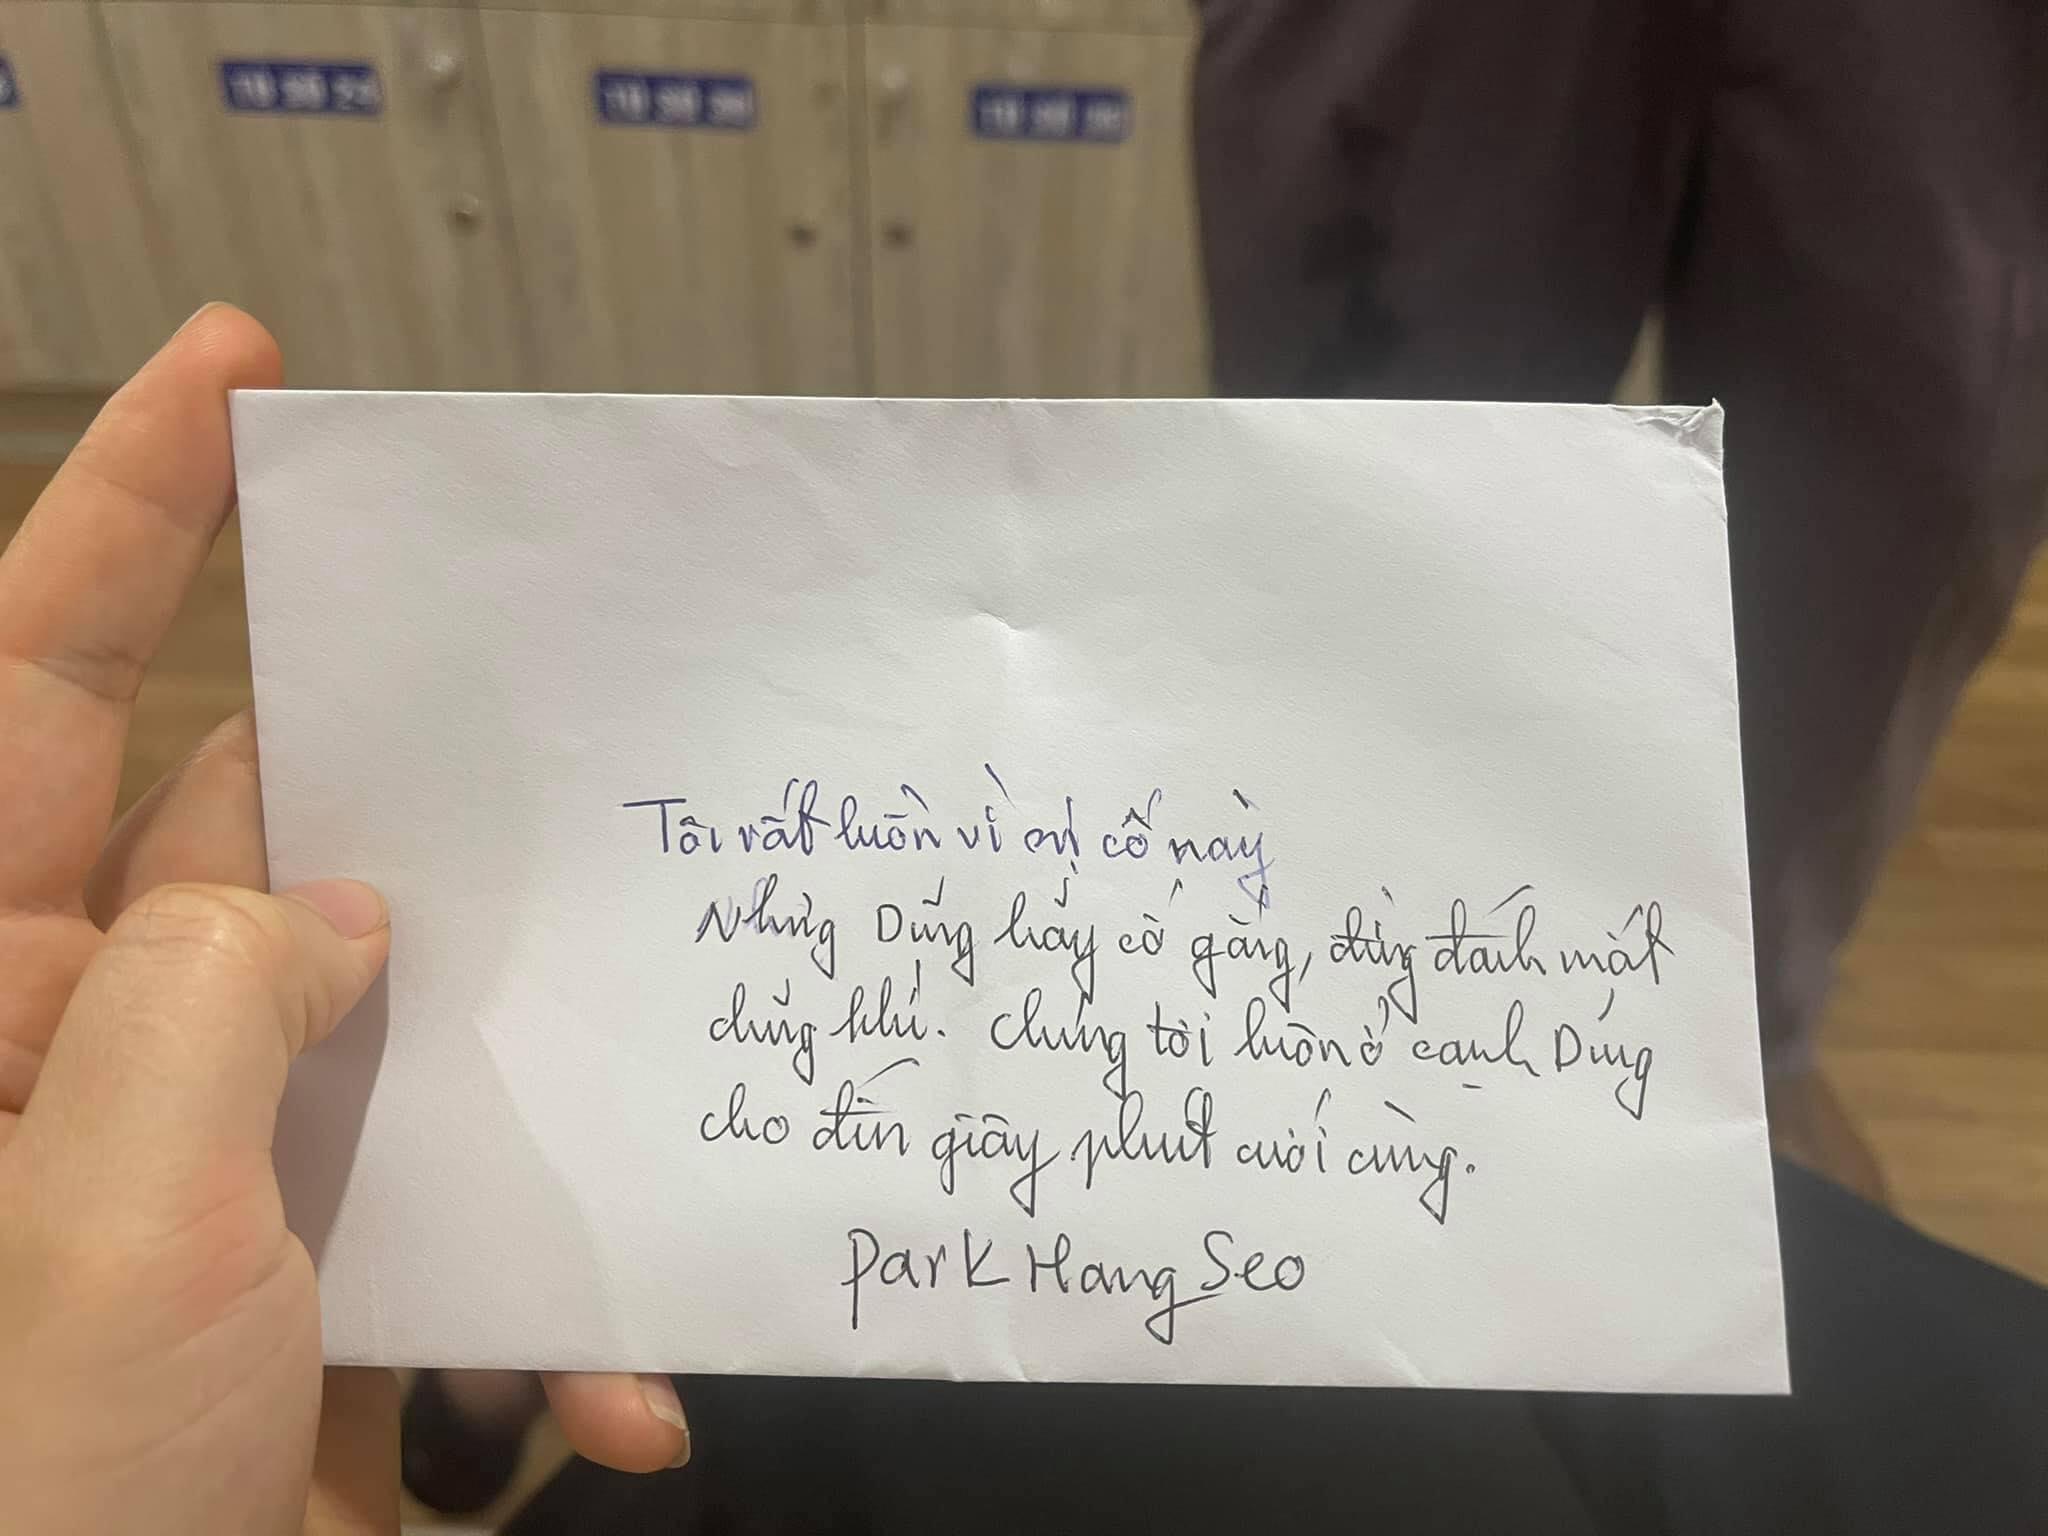 TỦ SỐ 29
TỦ SỐ 30
Tôi rất luồn vì sự cố này
Nhưng Dũng hãy cố gắng, đừng đánh mất
dũng khí. Chúng tôi luôn ở cạnh Dũng
cho đến giây phút cuối cùng.
Park Hang Seo